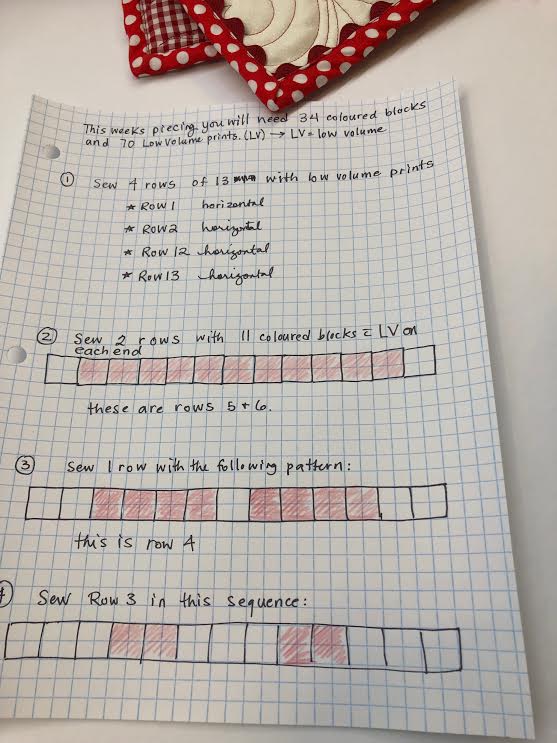 This weeks piecing you will need 34 coloured blocks
and 70 Low Volume prints. (LV) → LV = low volume
① Sew 4 rows of 13 with low volume prints
* Row 1 horizontal
* Row 2 horizontal
* Row 12 horizontal
* Row 13 horizontal
② Sew 2 rows with 11 coloured blocks c LV on
each end
these are rows 5 + 6.
③ Sew 1 row with the following pattern:
this is row 4
Sew Row 3 in this sequence: